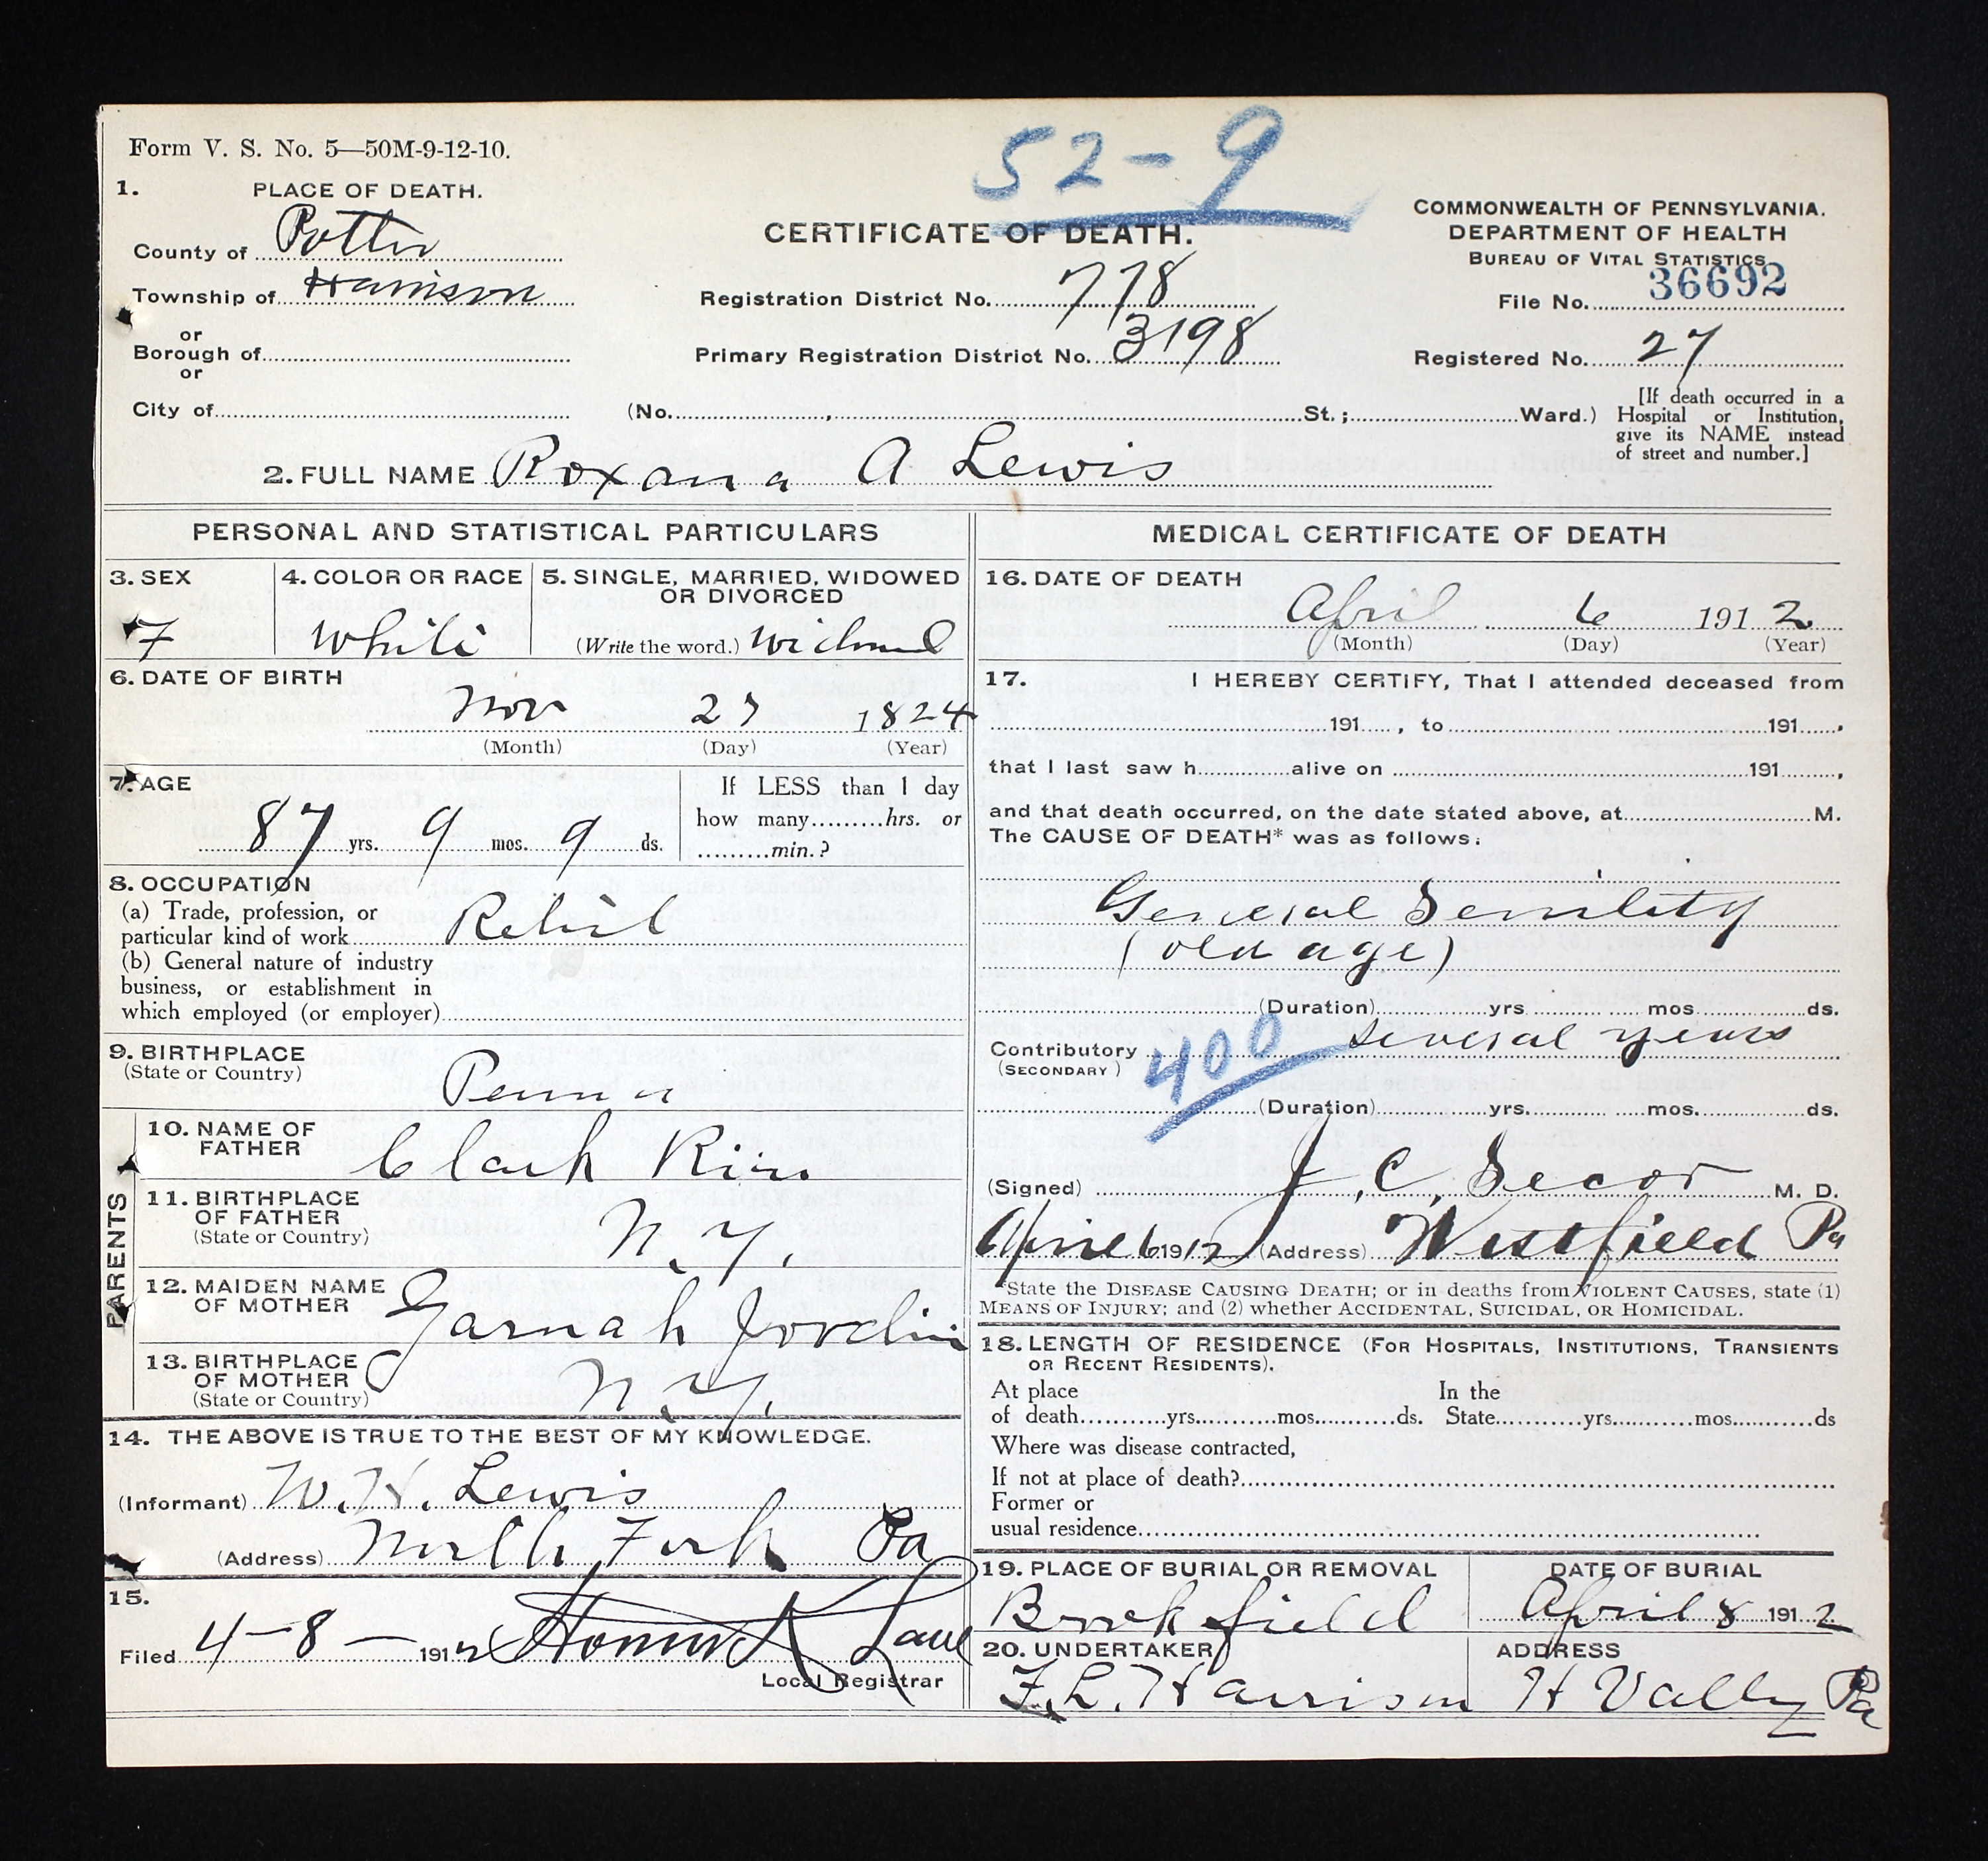 52-9
Form V. S. No. 5—50M-9-12-10.
1. PLACE OF DEATH.
County of Potter
Township of Harrison
or
Borough of
or
City of
CERTIFICATE OF DEATH.
Registration District No. 778
Primary Registration District No. 3198
(No. , St.; Ward.)
COMMONWEALTH OF PENNSYLVANIA.
DEPARTMENT OF HEALTH
BUREAU OF VITAL STATISTICS
File No. 36692
Registered No. 27
[If death occurred in a
Hospital or Institution,
give its NAME instead
of street and number.]
2. FULL NAME Roxana A Lewis
PERSONAL AND STATISTICAL PARTICULARS
3. SEX
F
4. COLOR OR RACE
White
5. SINGLE, MARRIED, WIDOWED
OR DIVORCED
(Write the word.) Widowed
6. DATE OF BIRTH
Nov 27 1824
(Month) (Day) (Year)
7. AGE
87 yrs. 9 mos. 9 ds.
If LESS than 1 day
how many hrs. or
min.?
8. OCCUPATION
(a) Trade, profession, or
particular kind of work
(b) General nature of industry
business, or establishment in
which employed (or employer)
9. BIRTHPLACE
(State or Country)
Penna
PARENTS
10. NAME OF
FATHER
Clark
11. BIRTHPLACE
OF FATHER
(State or Country)
N.Y.
12. MAIDEN NAME
OF MOTHER
13. BIRTHPLACE
OF MOTHER
(State or Country)
N.Y.
14. THE ABOVE IS TRUE TO THE BEST OF MY KNOWLEDGE.
(Informant) W. H. Lewis
(Address) North Fork Pa
15.
Filed 4-8-1912
Local Registrar
MEDICAL CERTIFICATE OF DEATH
16. DATE OF DEATH
April 6 1912
(Month) (Day) (Year)
17. I HEREBY CERTIFY, That I attended deceased from
191 , to 191 ,
that I last saw h alive on 191 ,
and that death occurred, on the date stated above, at M.
The CAUSE OF DEATH* was as follows:
General Senility
(old age)
(Duration) yrs mos ds.
several years
Contributory
(SECONDARY)
400
(Duration) yrs. mos. ds.
(Signed) J. C. Secor M. D.
April 6 1912 (Address) Westfield Pa
*State the DISEASE CAUSING DEATH; or in deaths from VIOLENT CAUSES, state (1)
MEANS OF INJURY; and (2) whether ACCIDENTAL, SUICIDAL, OR HOMICIDAL.
18. LENGTH OF RESIDENCE (FOR HOSPITALS, INSTITUTIONS, TRANSIENTS
OR RECENT RESIDENTS).
At place In the
of death yrs. mos. ds. State yrs. mos. ds
Where was disease contracted,
If not at place of death?
Former or
usual residence
19. PLACE OF BURIAL OR REMOVAL
Brookfield
DATE OF BURIAL
April 8 1912
20. UNDERTAKER
F. L. Harrison
ADDRESS
H Vally Pa